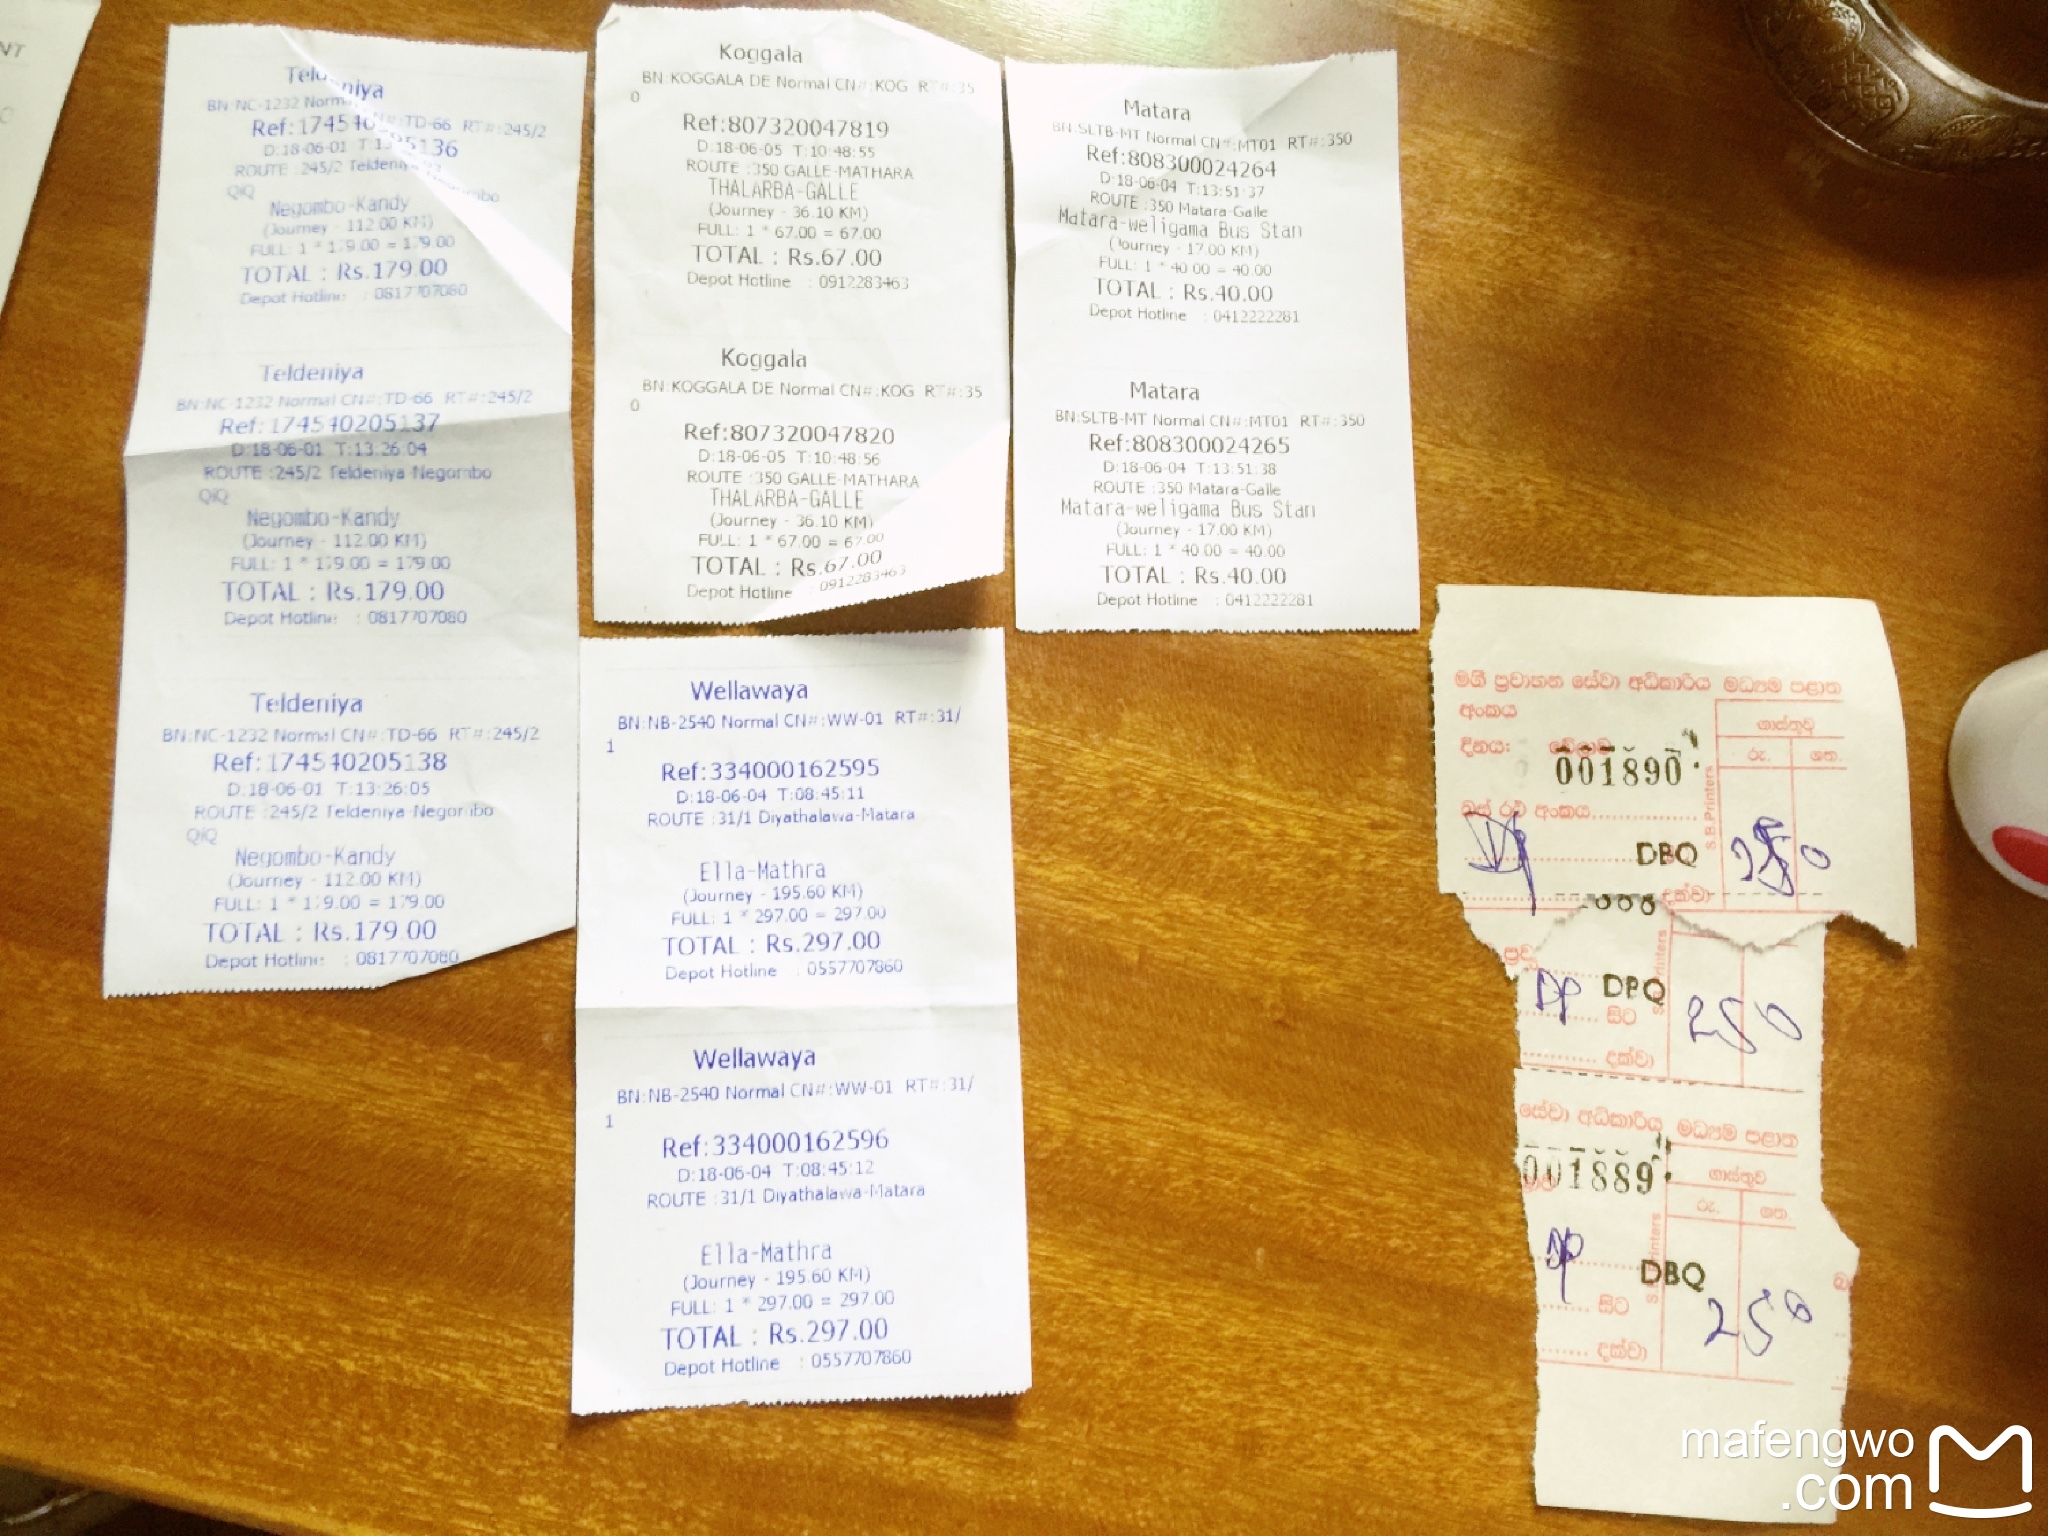 NT
Teldeniya
BN:NC-1232 Norm N#:TD-66 RT#:245/2
Ref:17454 5136
D:18-06-01
ROUTE :245/2 Teldeniya-Negombo
QiQ
Negombo-Kandy
(Journey - 112.00 KM)
FULL: 1 * 179.00 = 179.00
TOTAL : Rs.179.00
Depot Hotline : 0817707080
Teldeniya
BN:NC-1232 Normal CN#:TD-66 RT#:245/2
Ref:174540205137
D:18-06-01 T:13:26:04
ROUTE :245/2 Teldeniya-Negombo
QiQ
Negombo-Kandy
(Journey - 112.00 KM)
FULL: 1 * 179.00 = 179.00
TOTAL : Rs.179.00
Depot Hotline : 0817707080
Teldeniya
BN:NC-1232 Normal CN#:TD-66 RT#:245/2
Ref:174540205138
D:18-06-01 T:13:26:05
ROUTE :245/2 Teldeniya-Negombo
QiQ
Negombo-Kandy
(Journey - 112.00 KM)
FULL: 1 * 179.00 = 179.00
TOTAL : Rs.179.00
Depot Hotline : 0817707080
Koggala
BN:KOGGALA DE Normal CN#:KOG RT#:35
0
Ref:807320047819
D:18-06-05 T:10:48:55
ROUTE :350 GALLE-MATHARA
THALARBA-GALLE
(Journey - 36.10 KM)
FULL: 1 * 67.00 = 67.00
TOTAL : Rs.67.00
Depot Hotline : 0912283463
Koggala
BN:KOGGALA DE Normal CN#:KOG RT#:35
0
Ref:807320047820
D:18-06-05 T:10:48:56
ROUTE :350 GALLE-MATHARA
THALARBA-GALLE
(Journey - 36.10 KM)
FULL: 1 * 67.00 = 67.00
TOTAL : Rs.67.00
Depot Hotline : 0912283463
Matara
BN:SLTB-MT Normal CN#:MT01 RT#:350
Ref:808300024264
D:18-06-04 T:13:51:37
ROUTE :350 Matara-Galle
Matara-weligama Bus Stan
(Journey - 17.00 KM)
FULL: 1 * 40.00 = 40.00
TOTAL : Rs.40.00
Depot Hotline : 0412222281
Matara
BN:SLTB-MT Normal CN#:MT01 RT#:350
Ref:808300024265
D:18-06-04 T:13:51:38
ROUTE :350 Matara-Galle
Matara-weligama Bus Stan
(Journey - 17.00 KM)
FULL: 1 * 40.00 = 40.00
TOTAL : Rs.40.00
Depot Hotline : 0412222281
Wellawaya
BN:NB-2540 Normal CN#:WW-01 RT#:31/
1
Ref:334000162595
D:18-06-04 T:08:45:11
ROUTE :31/1 Diyathalawa-Matara
Ella-Mathra
(Journey - 195.60 KM)
FULL: 1 * 297.00 = 297.00
TOTAL : Rs.297.00
Depot Hotline : 0557707860
Wellawaya
BN:NB-2540 Normal CN#:WW-01 RT#:31/
1
Ref:334000162596
D:18-06-04 T:08:45:12
ROUTE :31/1 Diyathalawa-Matara
Ella-Mathra
(Journey - 195.60 KM)
FULL: 1 * 297.00 = 297.00
TOTAL : Rs.297.00
Depot Hotline : 0557707860
මගී ප්‍රවාහන සේවා අධිකාරිය මධ්‍යම පළාත
අංකය
ගාස්තුව
දිනය: වේලාව
රු. ශත.
001890
බස් රථ අංකය
S.B.Printers
DBQ
250
දක්වා
DBQ
250
සිට
Printers
දක්වා
සේවා අධිකාරිය මධ්‍යම පළාත
001889
ගාස්තුව
රු. ශත.
DBQ
සිට
250
දක්වා
mafengwo
.com